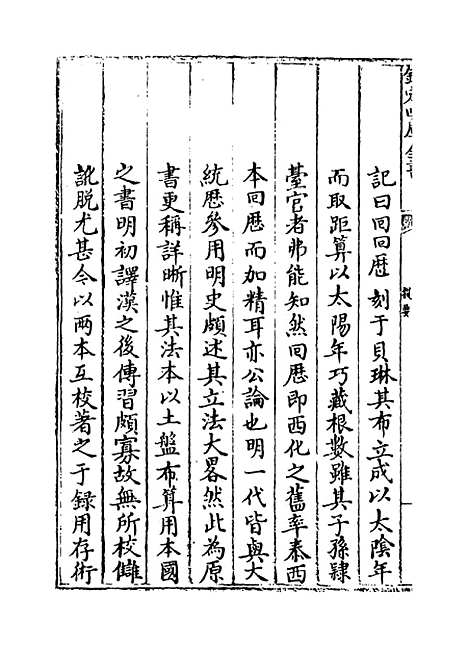 欽定四庫全書
提要
記曰回回歴刻于貝琳其布立成以太陰年
而取距算以太陽年巧藏根數雖其子孫隸
臺官者弗能知然回歴即西化之舊率泰西
本回歴而加精耳亦公論也明一代皆與大
統歴參用明史頗述其立法大畧然此為原
書更稱詳晰惟其法本以土盤布算用本國
之書明初譯漢之後傳習頗寡故無所校讎
訛脱尤甚今以兩本互校著之于録用存術